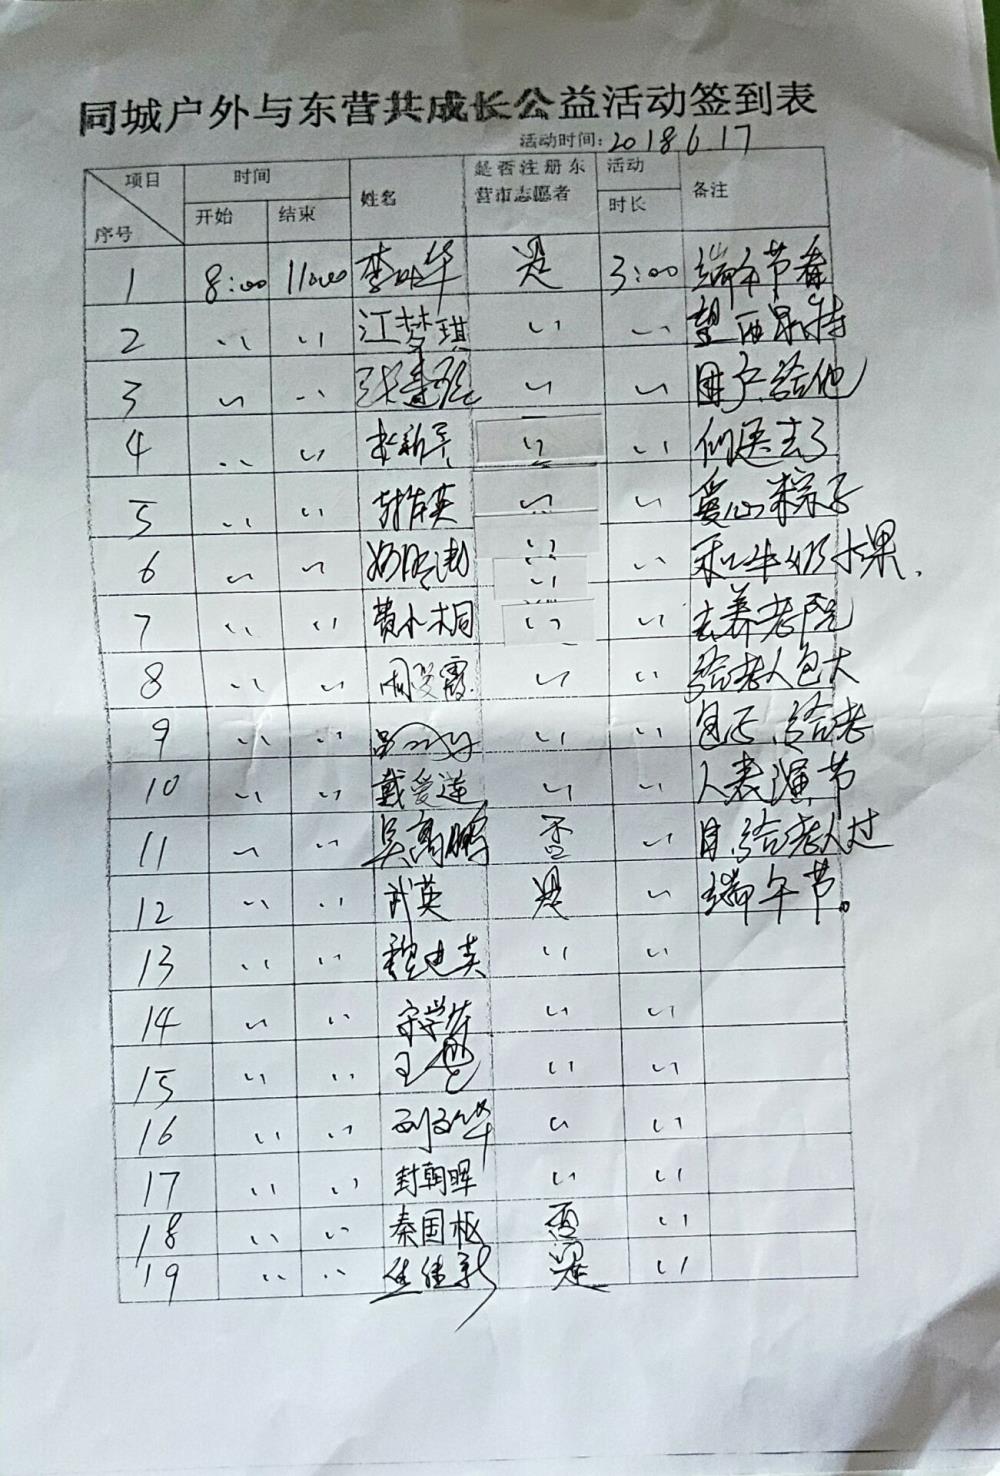 同城户外与东营共成长公益活动签到表
活动时间:2018 6.17
项目 时间 姓名 是否注册东营市志愿者 活动 备注
序号 开始 结束 时长
1 8:00 11:00 李 华 是 3:00 端午节看
2 〃 〃 江梦琪 〃 〃 望西
3 〃 〃 〃 〃 困户.给他
4 〃 〃 〃 〃 们送去了
5 〃 〃 〃 〃 爱心粽子
6 〃 〃 〃 〃 和牛奶水果.
7 〃 〃 费小桐 〃 〃 去养老院
8 〃 〃 周 霞 〃 〃 给老人包大
9 〃 〃 〃 〃 包子、给老
10 〃 〃 戴爱莲 〃 〃 人表演节
11 〃 〃 吴高鹏 否 〃 目、给老人过
12 〃 〃 武英 是 〃 端午节。
13 〃 〃 程建英 〃 〃
14 〃 〃 宋学芳 〃 〃
15 〃 〃 王 〃 〃
16 〃 〃 刘 华 〃 〃
17 〃 〃 封朝晖 〃 〃
18 〃 〃 秦国枢 否 〃
19 〃 〃 是 〃